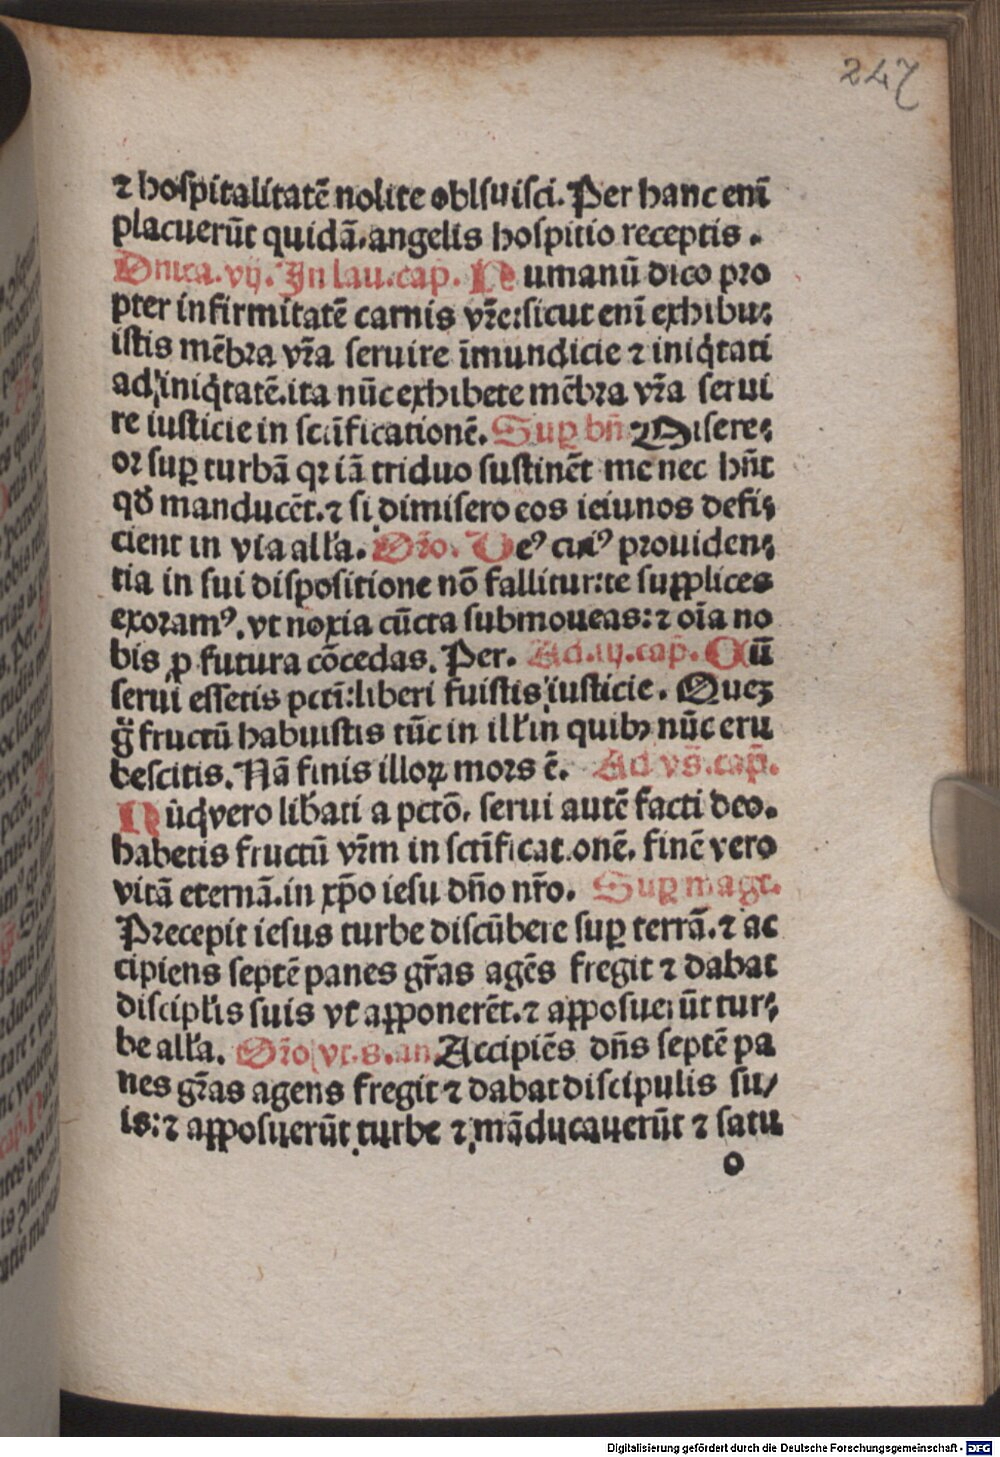 247
⁊ hoſpitalitatē nolite oblſuiſci. Per hanc enī
placuerūt quidā, angelis hoſpitio receptis.
Dnica. vij. In lau. cap. Humanū dico pro
pter infirmitatē carnis vr̄e: ſicut enī exhibu⸗
iſtis mēbra vr̄a ſeruire īmundicie ⁊ iniq̇tati
ad iniq̇tatē. ita nūc exhibete mēbra vr̄a ſerui
re iuſticie in ſcīficationē. Suꝑ bn̄ Miſere⸗
or ſuꝑ turbā qꝛ iā triduo ſuſtinēt me nec hn̄t
qđ manducēt. ⁊ ſi dimiſero eos ieiunos defi⸗
cient in via all'a. Or̄o. Deꝰ cuiꝰ prouiden⸗
tia in ſui diſpoſitione nō fallitur: te ſupplices
exoramꝰ. vt noxia cūcta ſubmoueas: ⁊ oīa no
bis ꝓ futura cōcedas. Per. Ad. iij. cap̄. Cū
ſerui eſſetis pctī: liberi fuiſtis iuſticie. Quez
g̊ fructū habuiſtis tūc in ill' in quibꝫ nūc eru
beſcitis. Nā finis illoꝝ mors ē. Ad vs̄. cap̄.
Nūc vero lib'ati a pctō, ſerui autē facti deo.
habetis fructū vr̄m in ſctīficationē, finē vero
vitā eternā. in xp̄o ieſu dn̄o nr̄o. Suꝑ maḡt.
Precepit ieſus turbe diſcūbere ſuꝑ terrā. ⁊ ac
cipiens ſeptē panes gr̄as agēs fregit ⁊ dabat
diſcipl'is ſuis vt apponerēt. ⁊ appoſuerūt tur⸗
be all'a. Or̄o vt. s. an. Accipiēs dn̄s ſeptē pa
nes gr̄as agens fregit ⁊ dabat diſcipulis ſu/
is: ⁊ appoſuerūt turbe ⁊ māducauerūt ⁊ ſatu
o
Digitalisierung gefördert durch die Deutsche Forschungsgemeinschaft - DFG